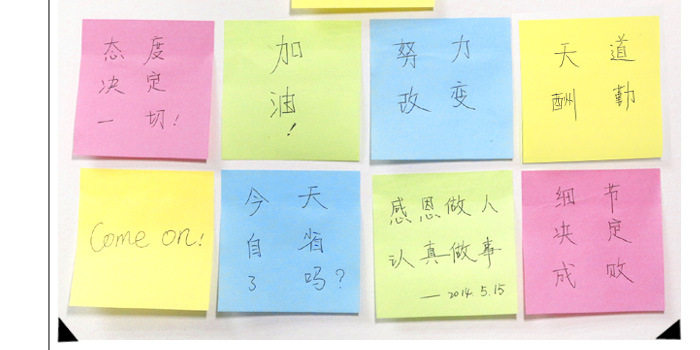 态度
决定
一切!
加
油!
努力
改变
天道
酬勤
Come on!
今天
自省
了吗?
感恩做人
认真做事
—2014.5.15
细节
决定
成败